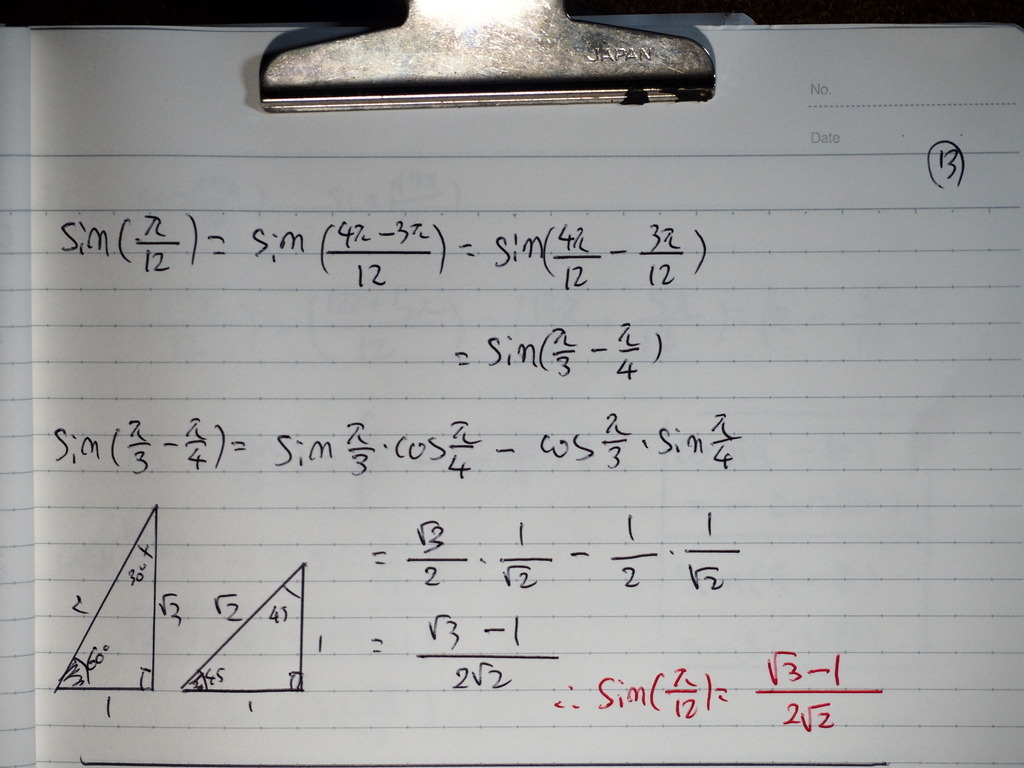 JAPAN
No.
Date
⑬
Sin(π/12) = Sin((4π-3π)/12) = Sin(4π/12 - 3π/12)
= Sin(π/3 - π/4)
Sin(π/3 - π/4) = Sin π/3 · cos π/4 - cos π/3 · Sin π/4
= √3/2 · 1/√2 - 1/2 · 1/√2
30°
2
√3
60°
1
√2
45
1
45
1
= (√3 - 1)/(2√2)
∴ Sin(π/12) = (√3-1)/(2√2)